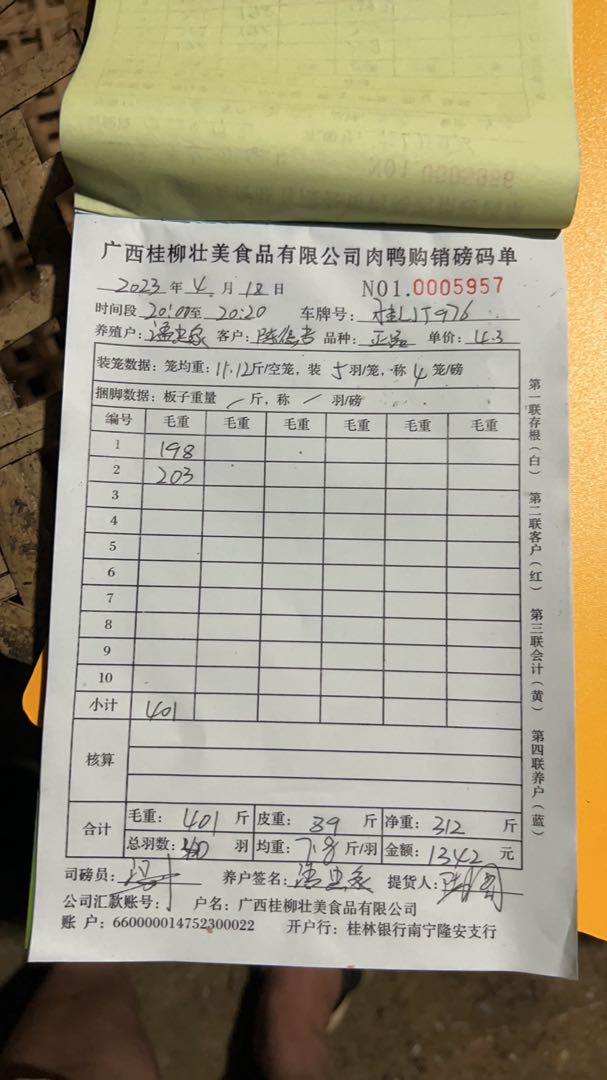 广西桂柳壮美食品有限公司肉鸭购销磅码单
2023 年 4 月 18 日 NO1.0005957
时间段 20:00至 20:20 车牌号：桂L1T976
养殖户： 客户： 品种：正品 单价：4.3
装笼数据：笼均重：11.12斤/空笼，装 5 羽/笼，称 4 笼/磅
捆脚数据：板子重量 / 斤，称 / 羽/磅
编号 毛重 毛重 毛重 毛重 毛重 毛重
1 198
2 203
3
4
5
6
7
8
9
10
小计 401
核算
合计 毛重：401 斤 皮重：89 斤 净重：312 斤
总羽数：40 羽 均重：7.8 斤/羽 金额：1342 元
司磅员： 养户签名： 提货人：
公司汇款账号： 户名：广西桂柳壮美食品有限公司
账 户：660000014752300022 开户行：桂林银行南宁隆安支行
第一联存根（白） 第二联客户（红） 第三联会计（黄） 第四联养户（蓝）